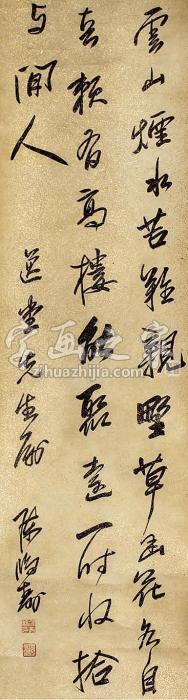 雲山煙水苦難親野草幽花各自
春賴有高樓能聚遠一时收拾
与閒人
先生屬 陳鴻壽
字画之家
zihuazhijia.com